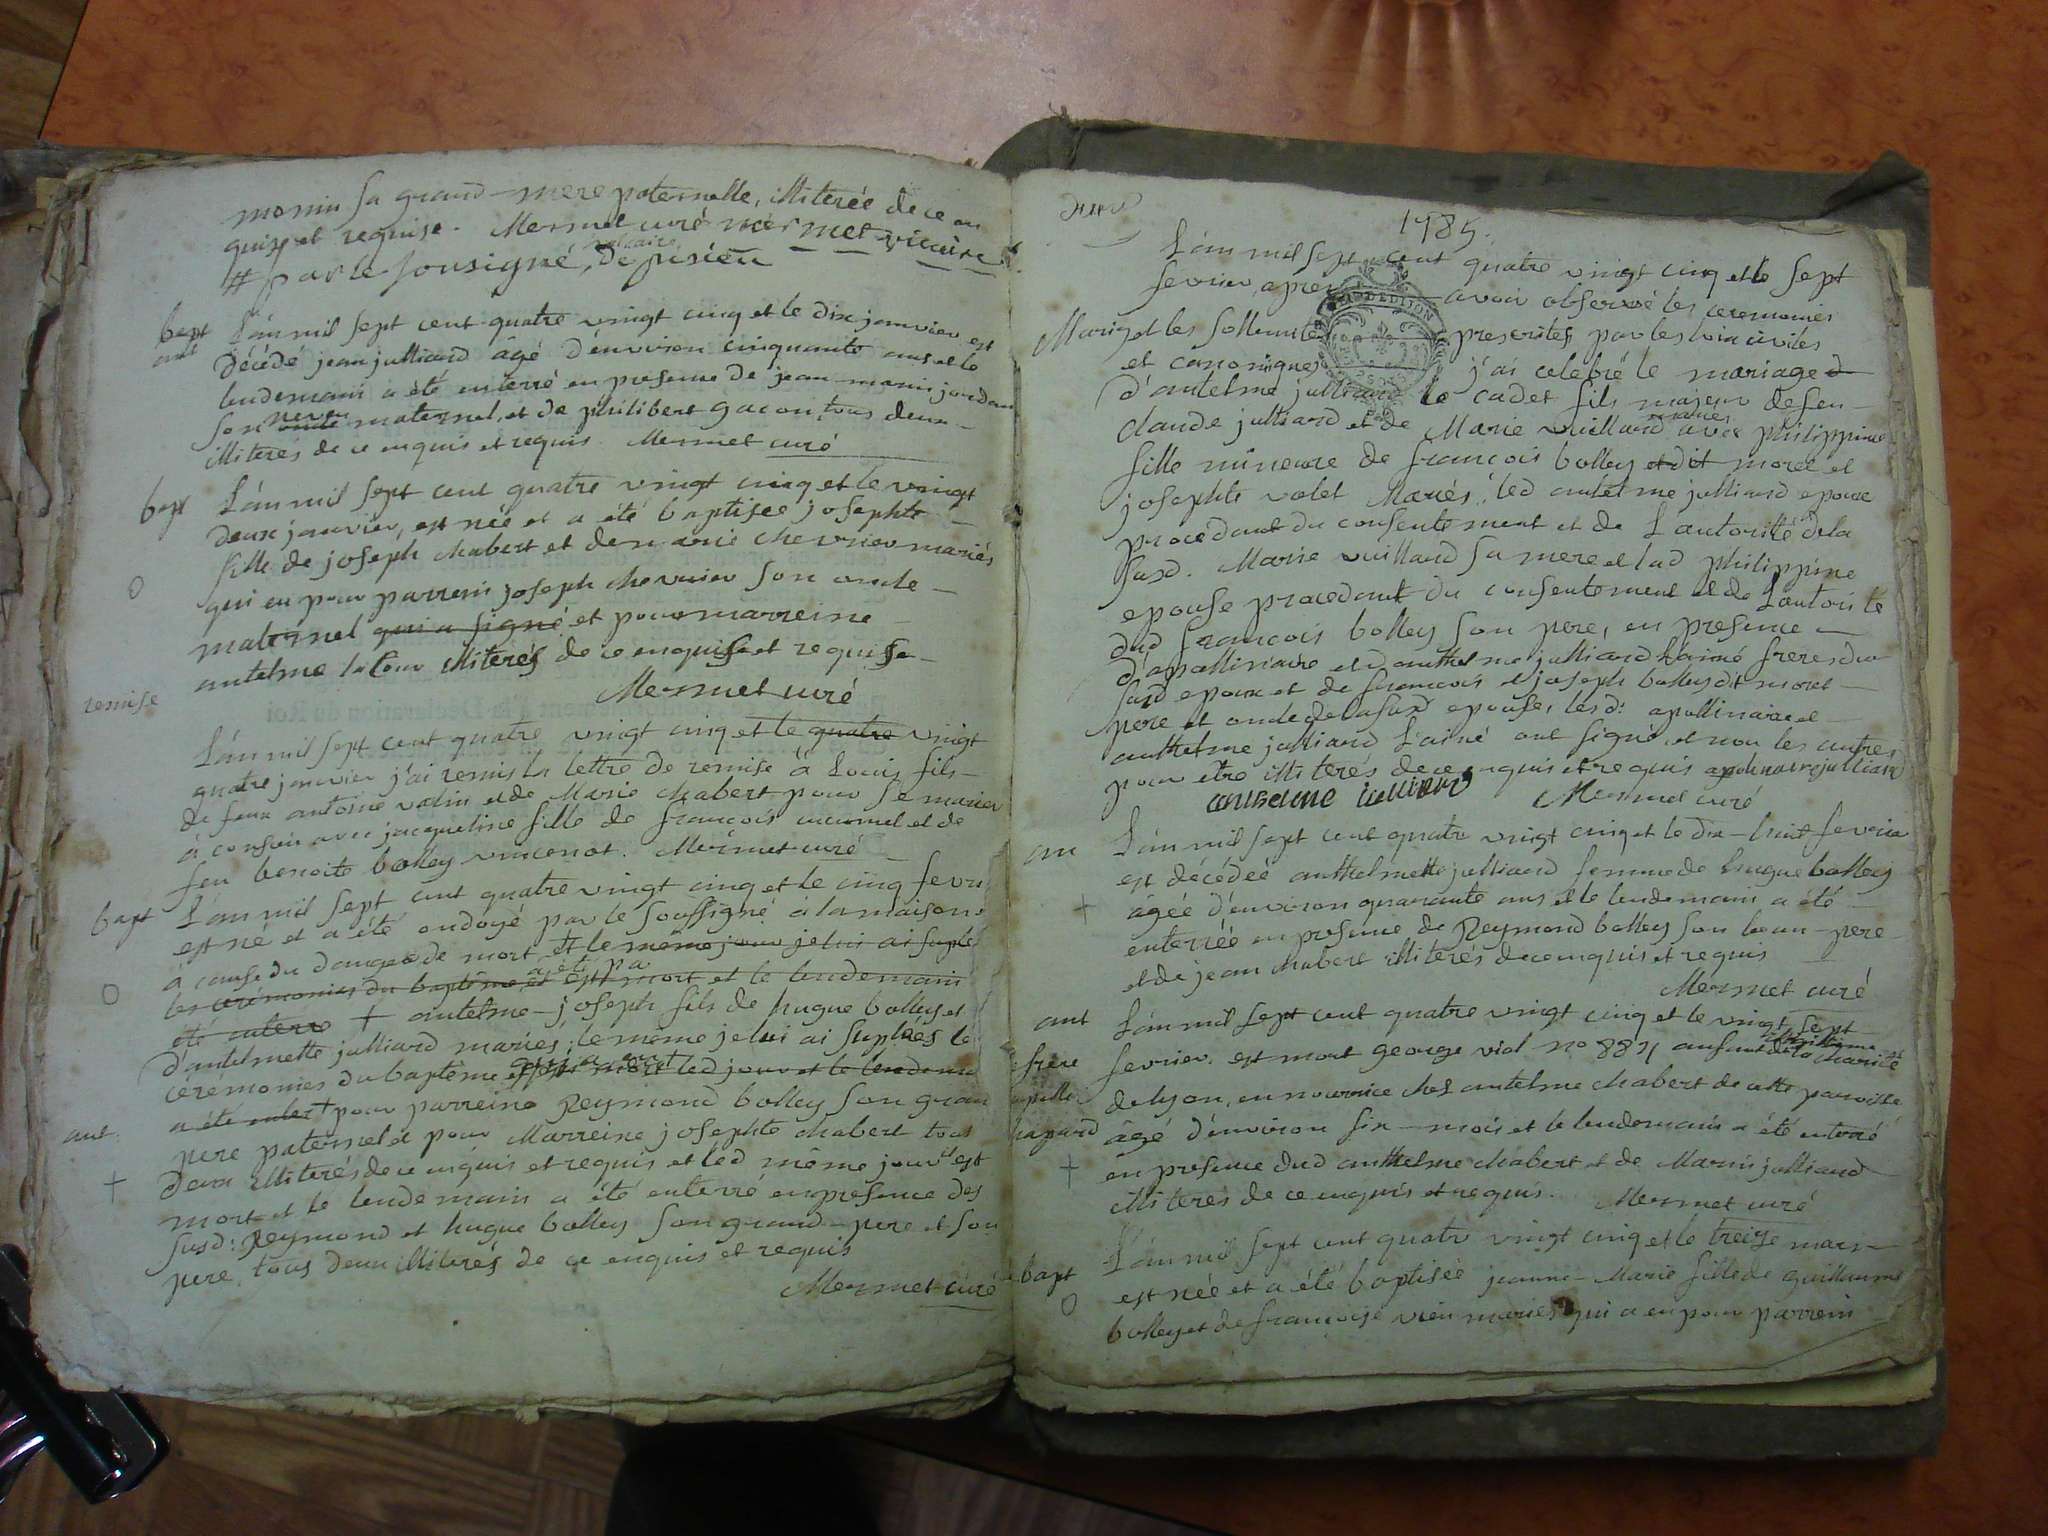 monin sa grand-mere paternelle, illiterée de ce en
quise et requise. Mermet curé mermet vicaire
# par le sousigné, de
bapt
ant
L'an mil sept cent quatre vingt cinq et le dix janvier est
décédé jean julliard âgé d'environ cinquante ans et le
lendemain a été enterré en presence de jean-marin jourdan
son neveu maternel, et de philibert gacon, tous deux
illiterés de ce enquis et requis. Mermet curé
bapt
L'an mil sept cent quatre vingt cinq et le vingt
deux janvier, est née et a été baptisée josephte
fille de joseph chabert et de marie chevrier mariés
O
qui eu pour parrein joseph chevrier son oncle
maternel qui a signé et pour marreine
antelme illiterés de ce enquise et requise
Mermet curé
remise
L'an mil sept cent quatre vingt cinq et le quatre vingt
quatre janvier j'ai remis la lettre de remise à Louis fils
de feux antoine valin et de Marie chabert pour se marier
à avec jacqueline fille de françois et de
feu benoite bolley vincenot. Mermet curé
bapt
L'an mil sept cent quatre vingt cinq et le cinq fevri
est né et a été ondoyé par le soussigné à la maison
à cause du danger de mort et le même jour je lui ai suplé
O
les cérémonies du baptême et est mort et le lendemain
été enterre + antelme-joseph fils de hugue bolley et
d'antelmette julliard mariés, le même je lui ai suplées le
céremonies du baptême et est mort led jour et le lendema
a été + pour parreino Reymond bolley son gran
ant.
pere paternel et pour Marreine josephte chabert tous
deux illiterés de ce enquis et requis et led même jour est
+
mort et le lendemain a été enterré en presence des
susd: Reymond et hugue bolley son grand-pere et son
pere, tous deux illiterés de ce enquis et requis
Mermet curé
1785.
L'an mil sept cent quatre vingt cinq et le sept
fevrier, apres avoir observé les ceremonies
Mariag et les sollemnités prescrites par les loix civiles
et canoniques j'ai celebré le mariage d
d'antelme julliard le cadet fils majeur de feu
claude julliard et de Marie vuillard mariés avec philippine
fille mineure de françois bolley et dit moret et
josephte valet Mariés, led antelme julliard epoux
procedant du consentement et de l'autorité de la
susd. Marie vuillard sa mere et lad philippine
epouse procedant du consentement et de l'autorité
dud françois bolley son pere, en presence
d'apallinaire et d'anthelme julliard l'ainé freres du
susd epoux et de françois et joseph bolley dit moret
pere et oncle de la susd epouse, lesd: apollinaire et
anthelme julliard l'ainé ont signé et non les autres
pour être illiterés de ce enquis et requis apolinaire julliard
antheme iulliard Mermet curé
ant
L'an mil sept cent quatre vingt cinq et le dix-huit fevrier
est décédée anthelmette julliard femme de hugue bolley
+
âgée d'environ quarante ans et le lendemain a été
enterrée en presence de Reymond bolley son beau-pere
et de jean chabert illiterés de ce enquis et requis
Mermet curé
ant
L'an mil sept cent quatre vingt cinq et le vingt sept
fevrier est mort george vial no 8871 enfant de la charité
de lyon, en nourrice chez antelme chabert de cette paroisse
âgé d'environ six-mois et le lendemain a été enterré
+
en presence dud anthelme chabert et de Marin julliard
illiterés de ce enquis et requis. Mermet curé
bapt
L'an mil sept cent quatre vingt cinq et le treize mars
est née et a été baptisée jeanne-Marie fille de guillaume
O
bolley et de françoise mariés qui a eu pour parrein